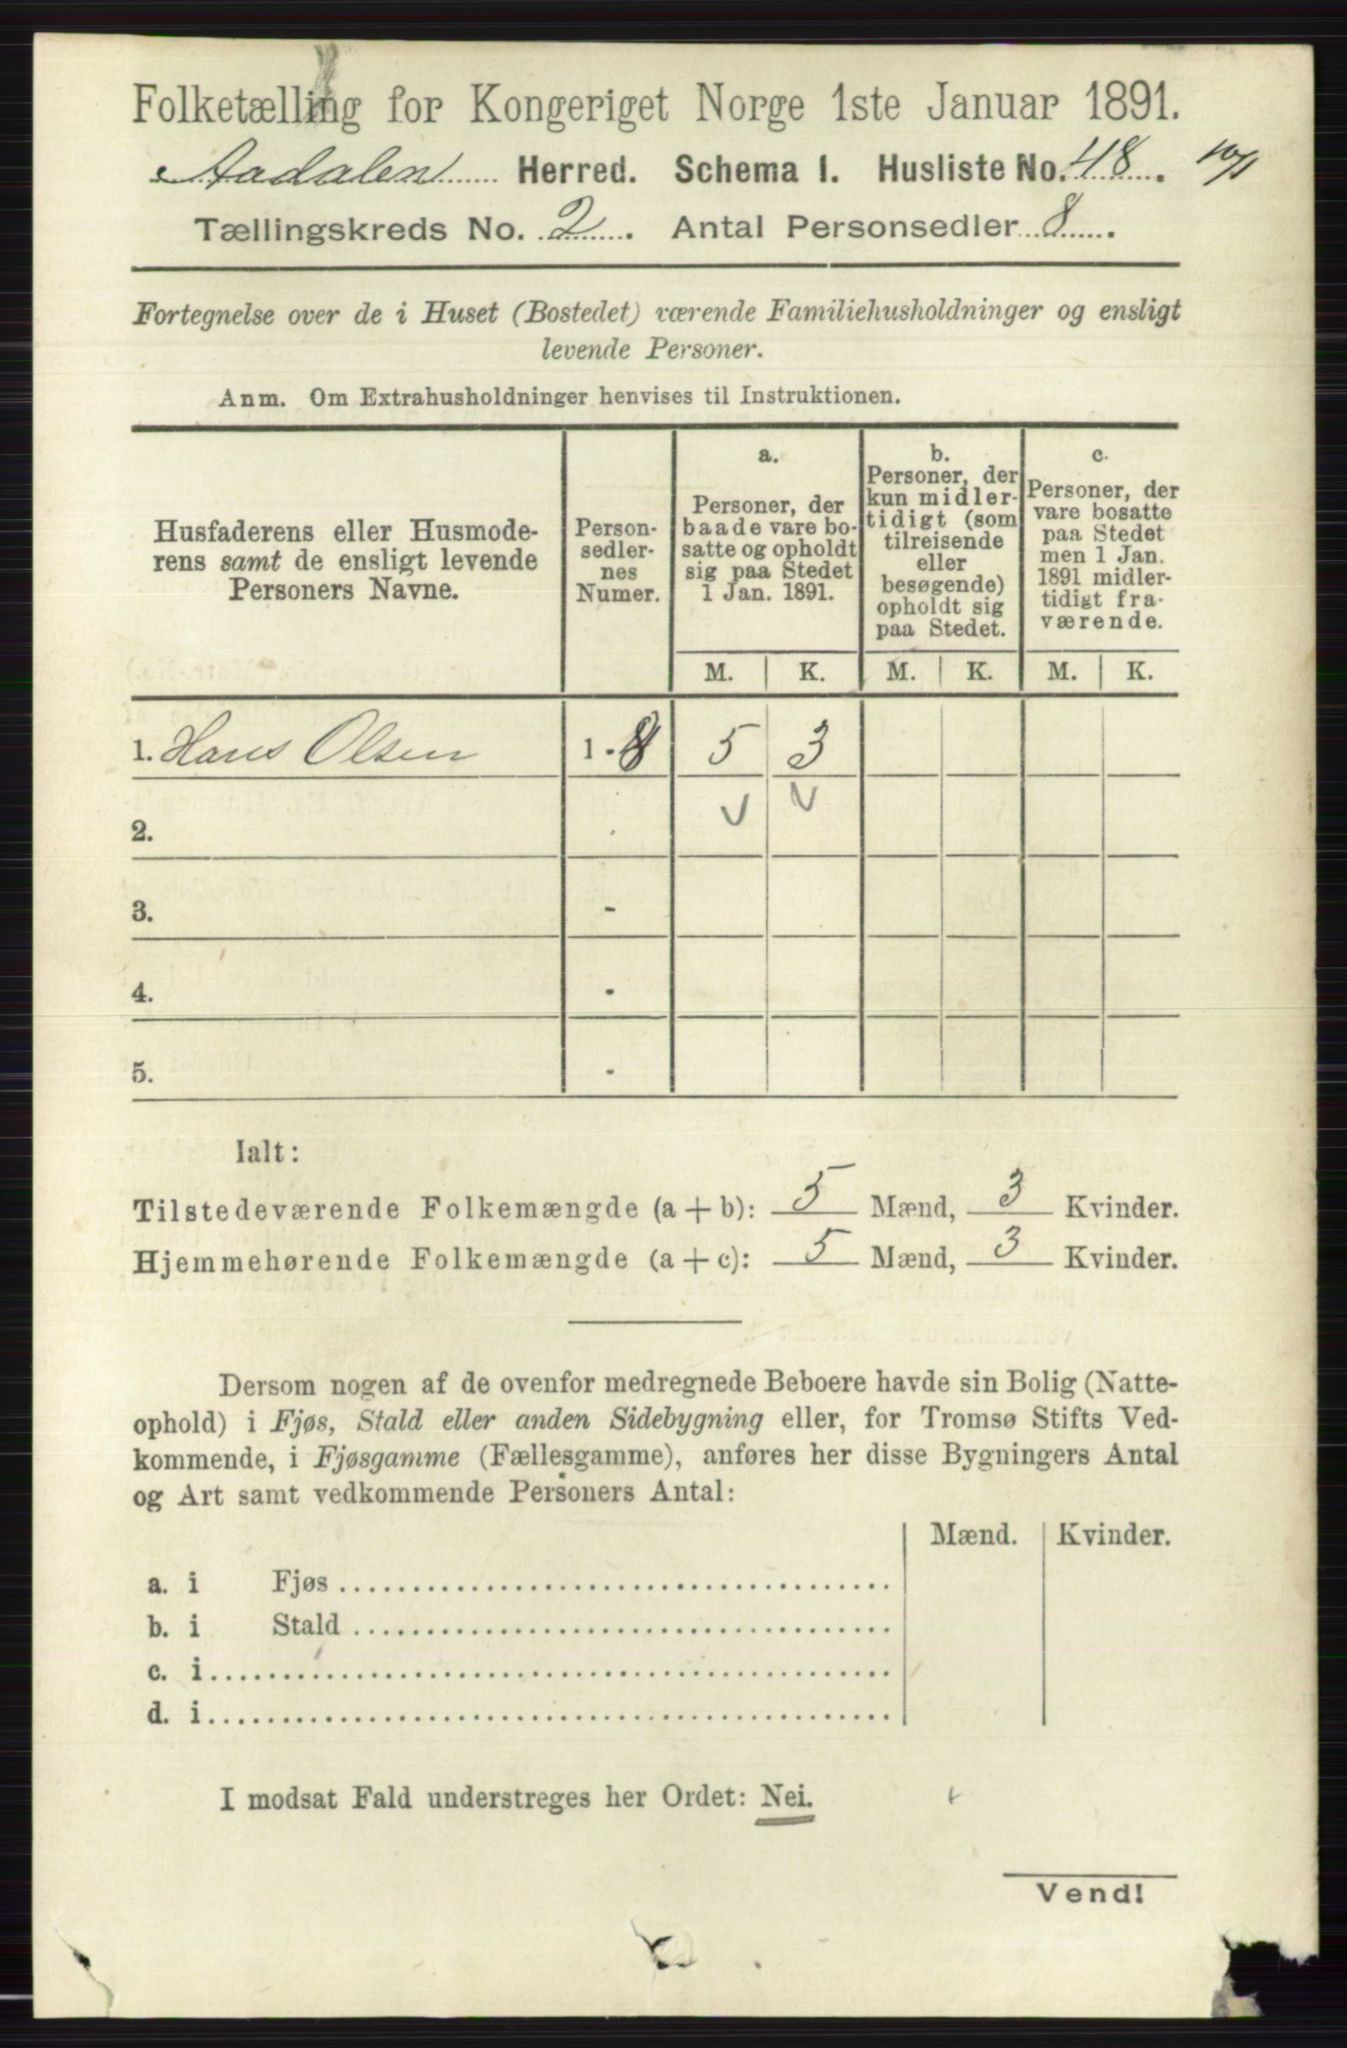 Folketælling for Kongeriget Norge 1ste Januar 1891.
Aadalen Herred. Schema I. Husliste No. 48.
Tællingskreds No. 2. Antal Personsedler 8.
Fortegnelse over de i Huset (Bostedet) værende Familiehusholdninger og ensligt
levende Personer.
Anm. Om Extrahusholdninger henvises til Instruktionen.
Husfaderens eller Husmode-
rens samt de ensligt levende
Personers Navne.
Person-
sedler-
nes
Numer.
a.
Personer, der
baade vare bo-
satte og opholdt
sig paa Stedet
1 Jan. 1891.
b.
Personer, der
kun midler-
tidigt (som
tilreisende
eller
besøgende)
opholdt sig
paa Stedet.
c.
Personer, der
vare bosatte
paa Stedet
men 1 Jan.
1891 midler-
tidigt fra-
værende.
M. K. M. K. M. K.
1. Hans Olsen 1 - 8 5 3
2.
3. -
4. -
5. -
Ialt:
Tilstedeværende Folkemængde (a + b): 5 Mænd, 3 Kvinder.
Hjemmehørende Folkemængde (a + c): 5 Mænd, 3 Kvinder.
Dersom nogen af de ovenfor medregnede Beboere havde sin Bolig (Natte-
ophold) i Fjøs, Stald eller anden Sidebygning eller, for Tromsø Stifts Ved-
kommende, i Fjøsgamme (Fællesgamme), anføres her disse Bygningers Antal
og Art samt vedkommende Personers Antal:
Mænd. Kvinder.
a. i Fjøs
b. i Stald
c. i
d. i
I modsat Fald understreges her Ordet: Nei.
Vend!